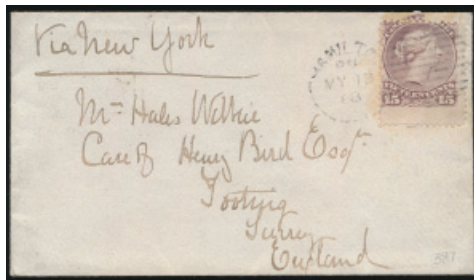 Via New York
HAMILTO
MY 18
FIFTEEN CENTS
15 15
Mr Hales Wilkie
Care of Henry Bird Esqr
Tooting
Surrey
England
387